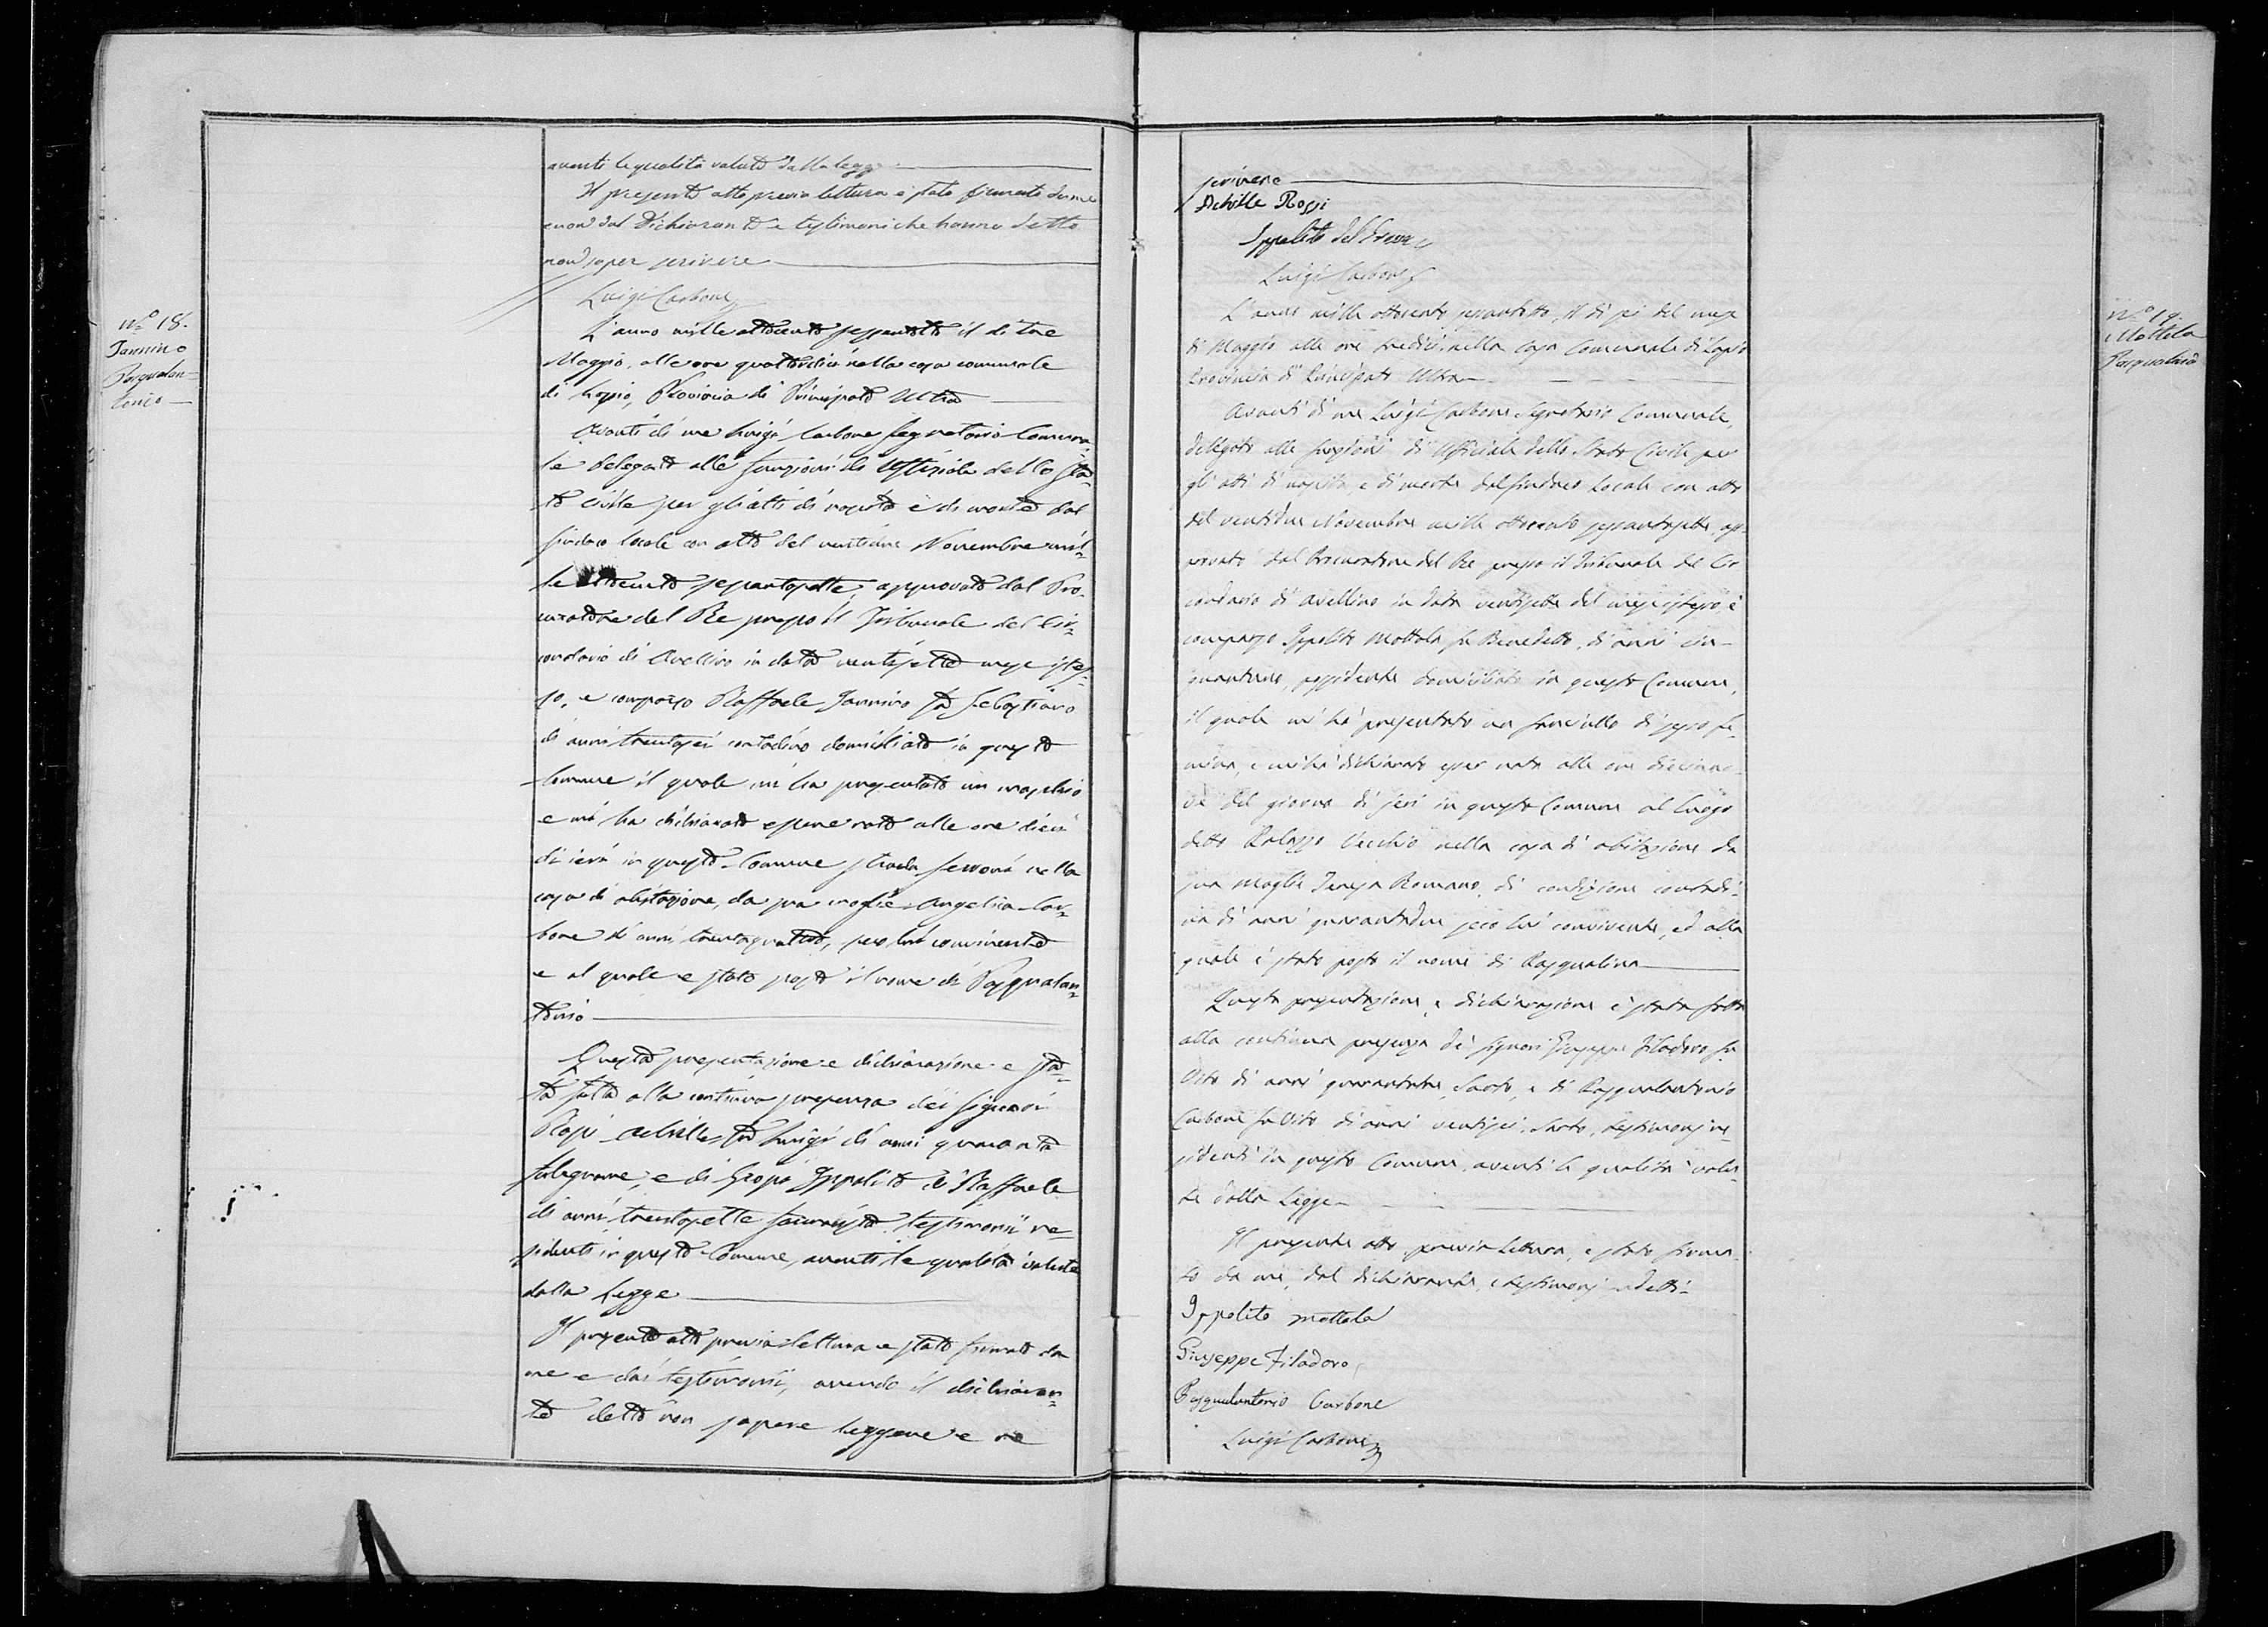 aventi le qualità volute dalla legge
Il presente atto previa lettura è stato firmato da me
e non dal Dichiarante e testimoni che hanno detto
non saper scrivere
Luigi Carbone
Nº 18.
Jannino
Pasqualan-
tonio
L'anno mille ottocento sessantotto il dì tre
Maggio, alle ore quattordici nella casa comunale
di Lapio, Provincia di Principato Ultra
Avanti di me Luigi Carbone Segretario Comuna-
le delegato alle funzioni di Uffiziale dello Sta-
to Civile per gli atti di nascita e di morte dal
Sindaco locale con atto del ventidue Novembre mil-
le ottocento sessantasette, approvato dal Pro-
curatore del Re presso il Tribunale del Cir-
condario di Avellino in data ventisette mese istes-
so, è comparso Raffaele Jannino fu Sebastiano
di anni trentasei contadino domiciliato in questo
Comune il quale mi ha presentato un maschio
e mi ha dichiarato essere nato alle ore dieci
di ieri in questo Comune strada nella
casa di abitazione, da sua moglie Angelica Car-
bone di anni trentaquattro, seco lui convivente
e al quale è stato posto il nome di Pasqualan-
tonio
Questa presentazione e dichiarazione è sta-
ta fatta alla continua presenza dei Signori
Rossi Achille fu Luigi di anni quaranta
falegname, e di Ippolito di Raffaele
di anni trentasette testimonii re-
sidenti in questo Comune, aventi le qualità volute
dalla Legge
Il presente atto previa lettura è stato firmato da
me e dai testimonii, avendo il dichiaran-
te detto non sapere leggere e ne
scrivere
Achille Rossi
Ippolito del
Luigi Carbone
Nº 19.
Mottola
Pasqualina
L'anno mille ottocento sessantotto, il dì sei del mese
di Maggio alle ore tredici nella Casa Comunale di Lapio
Provincia di Principato Ultra
Avanti di me Luigi Carbone Segretario Comunale,
delegato alle funzioni di Ufficiale dello Stato Civile per
gli atti di nascita, e di morte dal Sindaco Locale con atto
del ventidue Novembre mille ottocento sessantasette ap-
provato dal Procuratore del Re presso il Tribunale del Cir
condario di Avellino in data ventisette del mese istesso, è
comparso Ippolito Mottola fu Benedetto, di anni cin-
quantuno, possidente domiciliato in questo Comune,
il quale mi ha presentato un fanciullo di sesso fe-
minino, e mi ha dichiarato esser nata alle ore diecinno-
ve del giorno di jeri in questo Comune al luogo
detto Palazzo Vecchio nella casa di abitazione da
sua moglie Teresa Romano, di condizione contadi-
na di anni quarantadue seco lui convivente, ed alla
quale è stato posto il nome di Pasqualina
Questa presentazione, e dichiarazione è stata fatta
alla continua presenza dei Signori Giuseppe Filadoro fu
Vito di anni quarantatre, Sarto, e di Pasqualantonio
Carbone fu Vito di anni ventisei, Sarto, testimonj re-
sidenti in questo Comune, aventi le qualità volu-
te dalla Legge
Il presente atto previa lettura, è stato firma-
to da me, dal dichiarante, e testimonj adetti
Ippolito Mottola
Giuseppe Filadoro
Pasqualantonio Carbone
Luigi Carbone